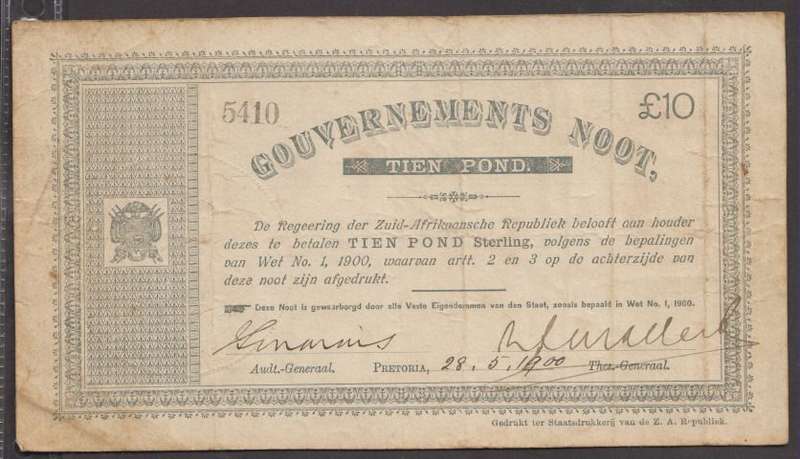 5410
£10
GOUVERNEMENTS NOOT,
TIEN POND.
De Regeering der Zuid-Afrikaansche Republiek belooft aan houder
dezes te betalen TIEN POND Sterling, volgens de bepalingen
van Wet No. 1, 1900, waarvan artt. 2 en 3 op de achterzijde van
deze noot zijn afgedrukt.
Deze Noot is gewaarborgd door alle Vaste Eigendommen van den Staat, zooals bepaald in Wet No. 1, 1900.
Audt.-Generaal. PRETORIA, 28.5.1900 Thes.-Generaal.
Gedrukt ter Staatsdrukkerij van de Z. A. Republiek.